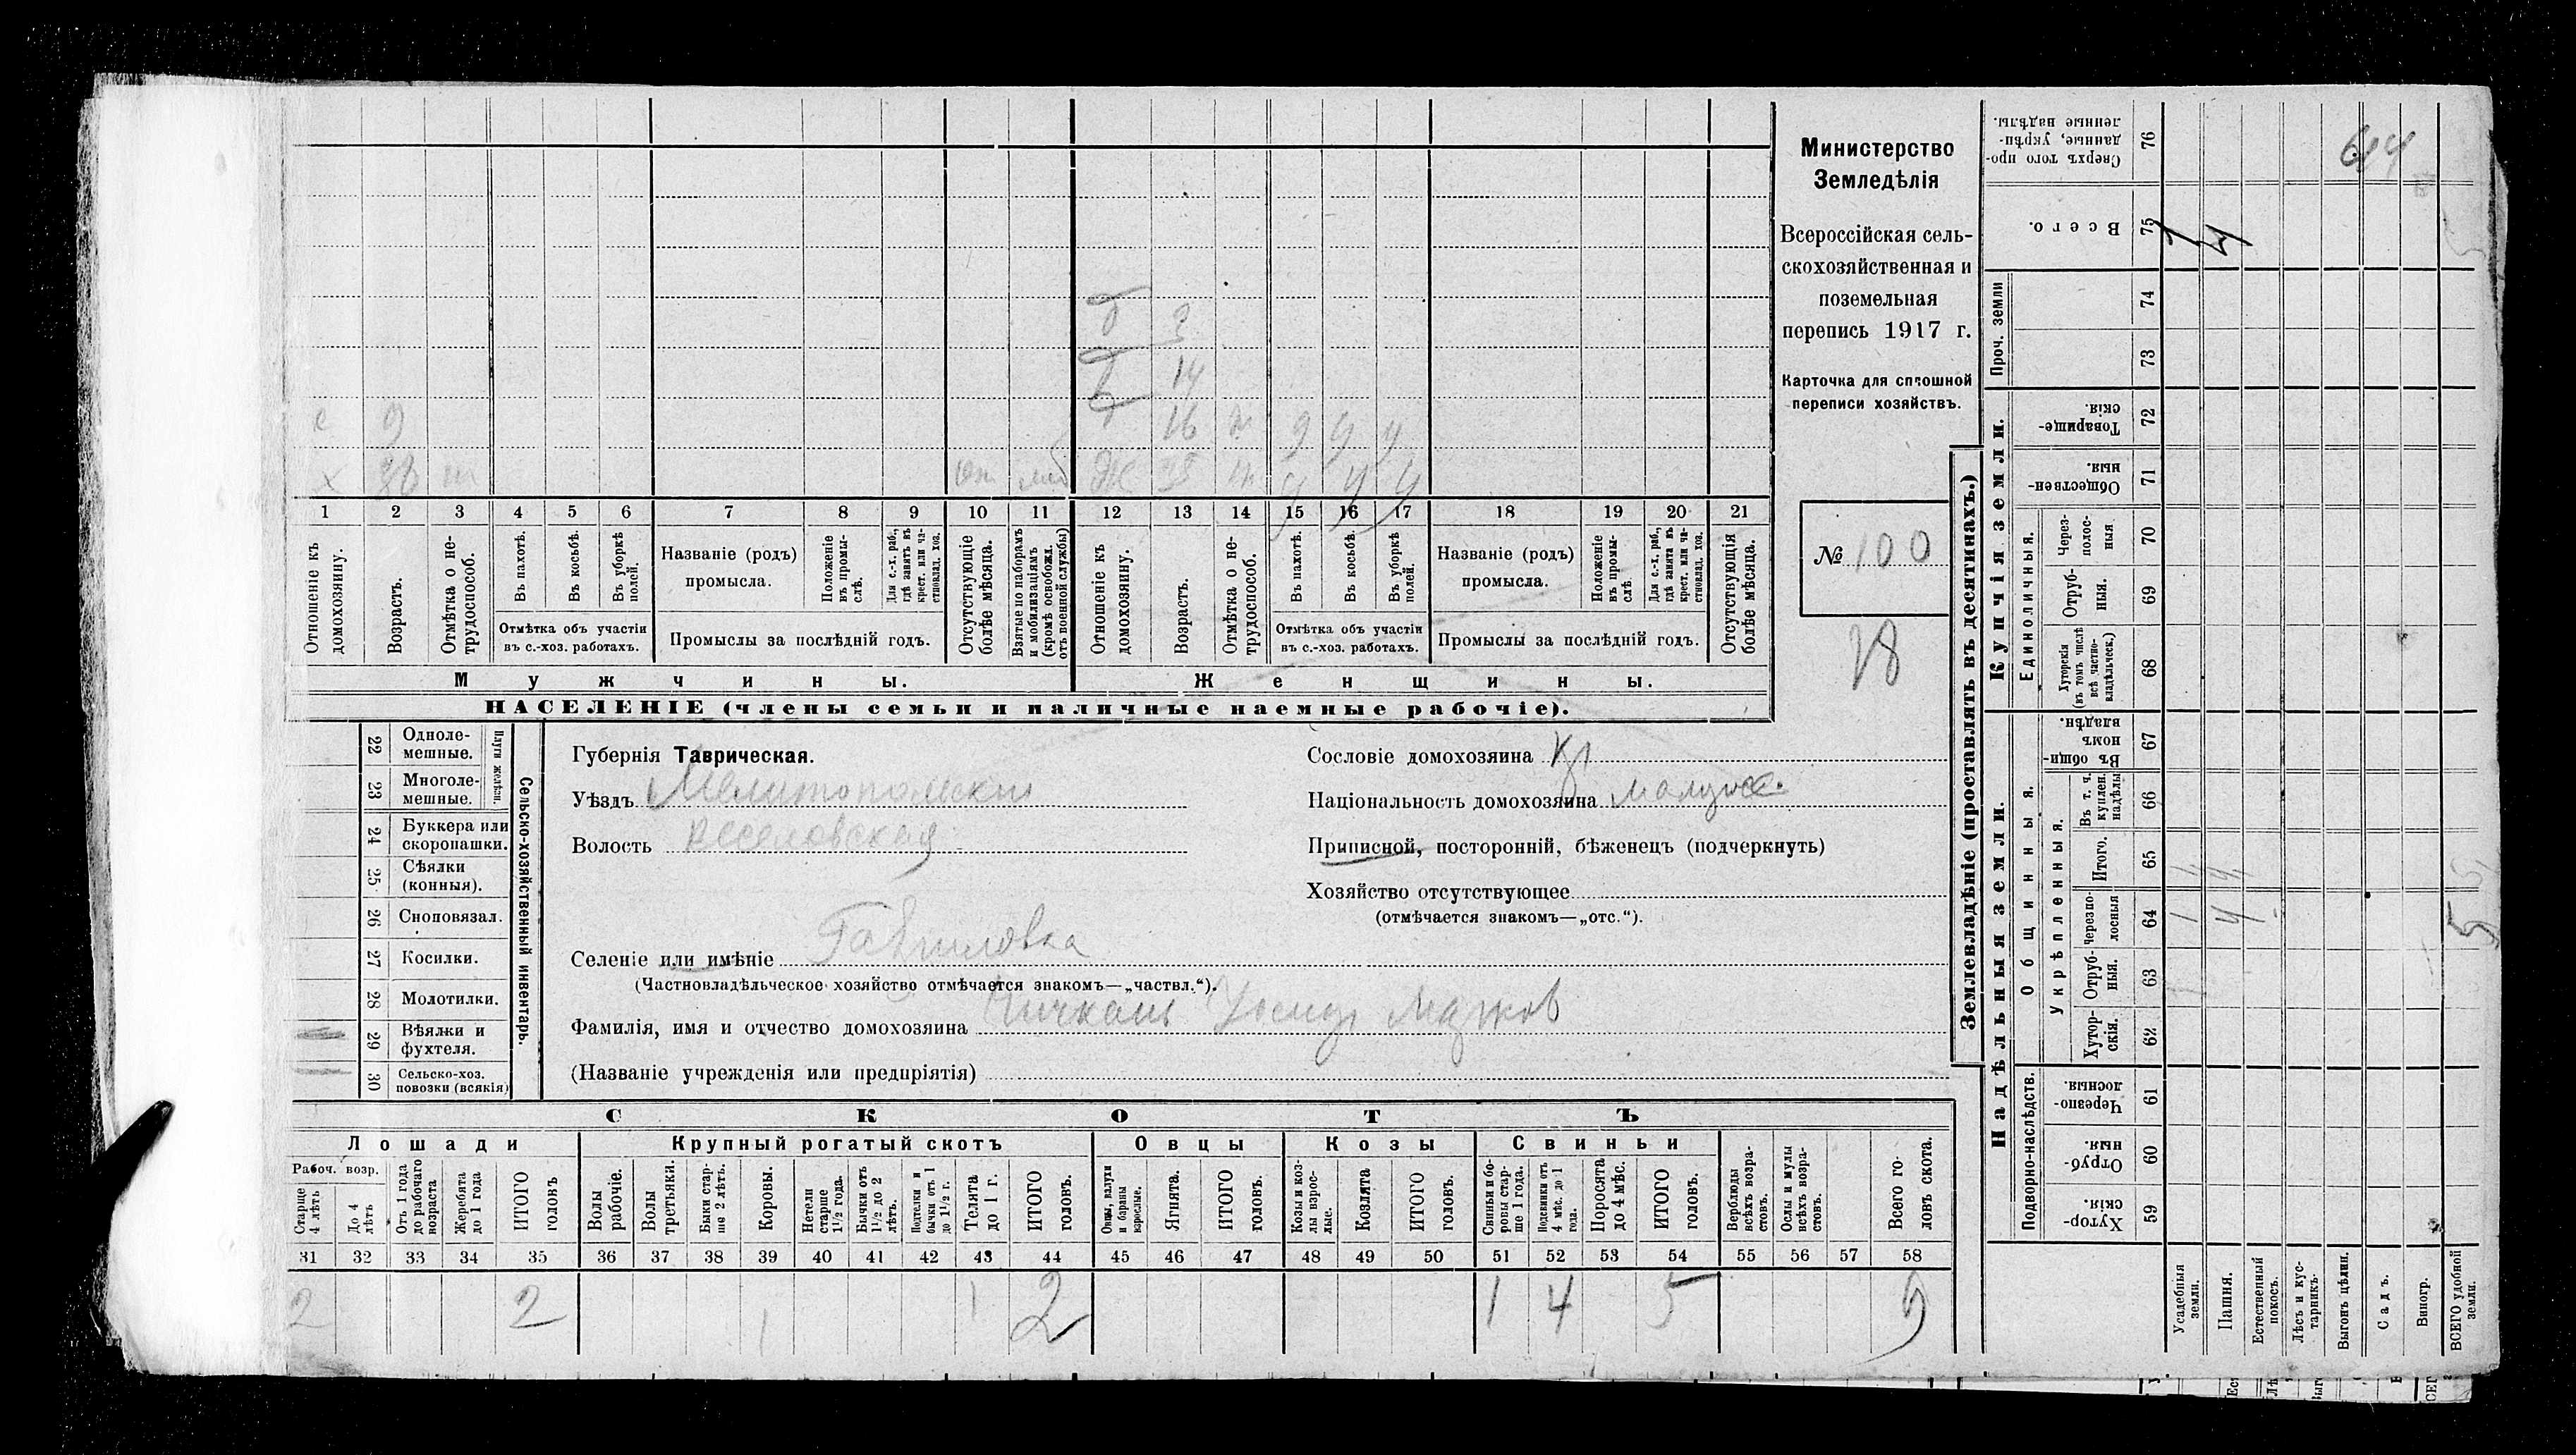 Министерство
Земледѣлія
Всероссійская сель-
скохозяйственная и
поземельная
перепись 1917 г.
Карточка для сплошной
переписи хозяйствъ.
№ 100
78
б 3
б 14
с 9 б 16 у у у
х 36 Ж 35 у у у
1 2 3 4 5 6 7 8 9 10 11 12 13 14 15 16 17 18 19 20 21
Отношеніе къ домохозяину.
Возрастъ.
Отмѣтка о не-трудоспособ.
Въ пахотѣ.
Въ косьбѣ.
Въ уборкѣ полей.
Отмѣтка объ участіи въ с.-хоз. работахъ.
Названіе (родъ) промысла.
Положеніе въ промы-слѣ.
Для с.-х. раб., гдѣ занятъ въ крест. или ча-стновлад. хоз.
Промыслы за послѣдній годъ.
Отсутствующіе болѣе мѣсяца.
Взятые по наборамъ и мобилизаціямъ (кромѣ освобожд. отъ военной службы)
Отношеніе къ домохозяину.
Возрастъ.
Отмѣтка о не-трудоспособ.
Въ пахотѣ.
Въ косьбѣ.
Въ уборкѣ полей.
Отмѣтка объ участіи въ с.-хоз. работахъ.
Названіе (родъ) промысла.
Положеніе въ промы-слѣ.
Для с.-х. раб., гдѣ занята въ крест. или ча-стновлад. хоз.
Промыслы за послѣдній годъ.
Отсутствующія болѣе мѣсяца.
Мужчины. Женщины.
НАСЕЛЕНІЕ (члены семьи и наличные наемные рабочіе).
22 Одноле-мешные.
23 Многоле-мешные.
Плуги желѣзн.
24 Буккера или скоропашки.
25 Сѣялки (конныя).
26 Сноповязал.
27 Косилки.
28 Молотилки.
29 Вѣялки и фухтеля.
30 Сельско-хоз. повозки (всякія)
Сельско-хозяйственный инвентарь.
Губернія Таврическая.
Уѣздъ Мелитопольскій
Волость Веселовская
Селеніе или имѣніе Гавриловка
(Частновладѣльческое хозяйство отмѣчается знакомъ—„частвл.“).
Фамилія, имя и отчество домохозяина
(Названіе учрежденія или предпріятія)
Сословіе домохозяина Кр
Національность домохозяина малорос.
Приписной, посторонній, бѣженецъ (подчеркнуть)
Хозяйство отсутствующее
(отмѣчается знакомъ—„отс.“).
СКОТЪ
Лошади Крупный рогатый скотъ Овцы Козы Свиньи
Рабоч. возр.
Старше 4 лѣтъ
До 4 лѣтъ
Отъ 1 года до рабочаго возраста
Жеребята до 1 года
ИТОГО головъ
Волы рабочіе.
Волы третьяки.
Быки стар-ше 2 лѣтъ.
Коровы.
Нетели старше 1½ года.
Бычки отъ 1½ до 2 лѣтъ.
Подтелки и бычки отъ 1 до 1½ г.
Телята до 1 г.
ИТОГО головъ.
Овцы, валухи и бараны взрослые.
Ягнята.
ИТОГО головъ.
Козы и коз-лы взрос-лые.
Козлята
ИТОГО головъ.
Свиньи и бо-ровы стар-ше 1 года.
Подсвинки отъ 4 мѣс. до 1 года.
Поросята до 4 мѣс.
ИТОГО головъ.
Верблюды всѣхъ возра-стовъ.
Ослы и мулы всѣхъ возра-стовъ.
Всего го-ловъ скота.
31 32 33 34 35 36 37 38 39 40 41 42 43 44 45 46 47 48 49 50 51 52 53 54 55 56 57 58
2 2 1 1 2 1 4 5 9
Землевладѣніе (проставлять въ десятинахъ.)
Купчія земли.
Надѣльныя земли.
Сверхъ того про-данные, укрѣп-ленные надѣлы. 76
Всего. 75
Проч. земли 74 73
Товарище-скія. 72
Обществен-ныя. 71
Единоличныя.
Через-полос-ныя 70
Отруб-ныя. 69
Хуторскія (въ томъ числѣ всѣ частно-владѣльческ.) 68
Общинныя.
Въ общи-номъ владѣн. 67
Укрѣпленныя.
Въ т. ч. куплен. надѣлы 66
Итого. 65
Черезпо-лосныя 64
Отруб-ныя. 63
Хутор-скія. 62
Подворно-наслѣдств.
Черезпо-лосныя. 61
Отруб-ныя. 60
Хутор-скія. 59
Усадебныя земли.
Пашня.
Естественный покосъ.
Лѣсъ и кус-тарникъ.
Выгонъ цѣлин.
Садъ.
Виногр.
ВСЕГО удобной земли.
1 4
1 4
1 4 5